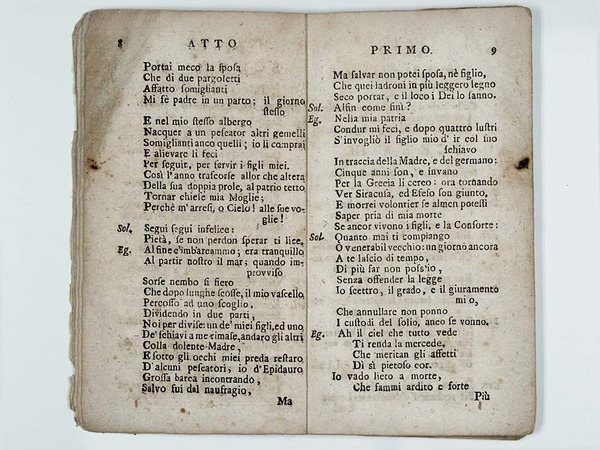 8 ATTO
Portai meco la ſpoſa
Che di due pargoletti
Affatto ſomiglianti
Mi fè padre in un parto; il giorno
ſteſſo
E nel mio ſteſſo albergo
Nacquer a un peſcator altri gemelli
Somiglianti anco quelli; io li comprai
E allevare li feci
Per ſeguir, per ſervir i figli miei.
Così l'anno traſcorſe allor che altera
Della ſua doppia prole, al patrio tetto
Tornar chieſe mia Moglie;
Perchè m'arreſi, o Cielo! alle ſue vo-
glie!
Sol. Segui ſegui infelice:
Pietà, ſe non perdon ſperar ti lice.
Eg. Al fine c'imbarcammo; era tranquillo
Al partir noſtro il mar; quando im-
provviſo
Sorſe nembo sì fiero
Che dopo lunghe ſcoſſe, il mio vaſcello
Percoſſo ad uno ſcoglio,
Dividendo in due parti,
Noi per diviſe: un de' miei figli, ed uno
De' ſchiavi a me rimaſe, andaro gli altri
Colla dolente Madre,
E ſotto gli occhi miei preda reſtaro
D'alcuni peſcatori; io d'Epidauro
Groſſa barca incontrando,
Salvo fui dal naufragio,
Ma
PRIMO. 9
Ma ſalvar non potei ſpoſa, nè figlio,
Che quei ladroni in più leggero legno
Seco portar, e il loco i Dei lo ſanno.
Sol. Alfin come finì?
Eg. Nella mia patria
Condur mi feci, e dopo quattro luſtri
S'invogliò il figlio mio d'ir col ſuo
ſchiavo
In traccia della Madre, e del germano:
Cinque anni ſon, e invano
Per la Grecia li cerco: ora tornando
Ver Siracuſa, ed Efeſo ſon giunto,
E morrei volontier ſe almen poteſſi
Saper pria di mia morte
Se ancor vivono i figli, e la Conſorte:
Sol. Quanto mai ti compiango
O venerabil vecchio: un giorno ancora
A te laſcio di tempo,
Di più far non poſſ'io,
Senza offender la legge
Io ſcettro, il grado, e il giuramento
mio,
Che annullare non ponno
I cuſtodi del ſolio, anco ſe vonno.
Eg. Ah il ciel che tutto vede
Ti renda la mercede,
Che meritan gli affetti
Di sì pietoſo cor.
Io vado lieto a morte,
Che fammi ardito e forte
Più